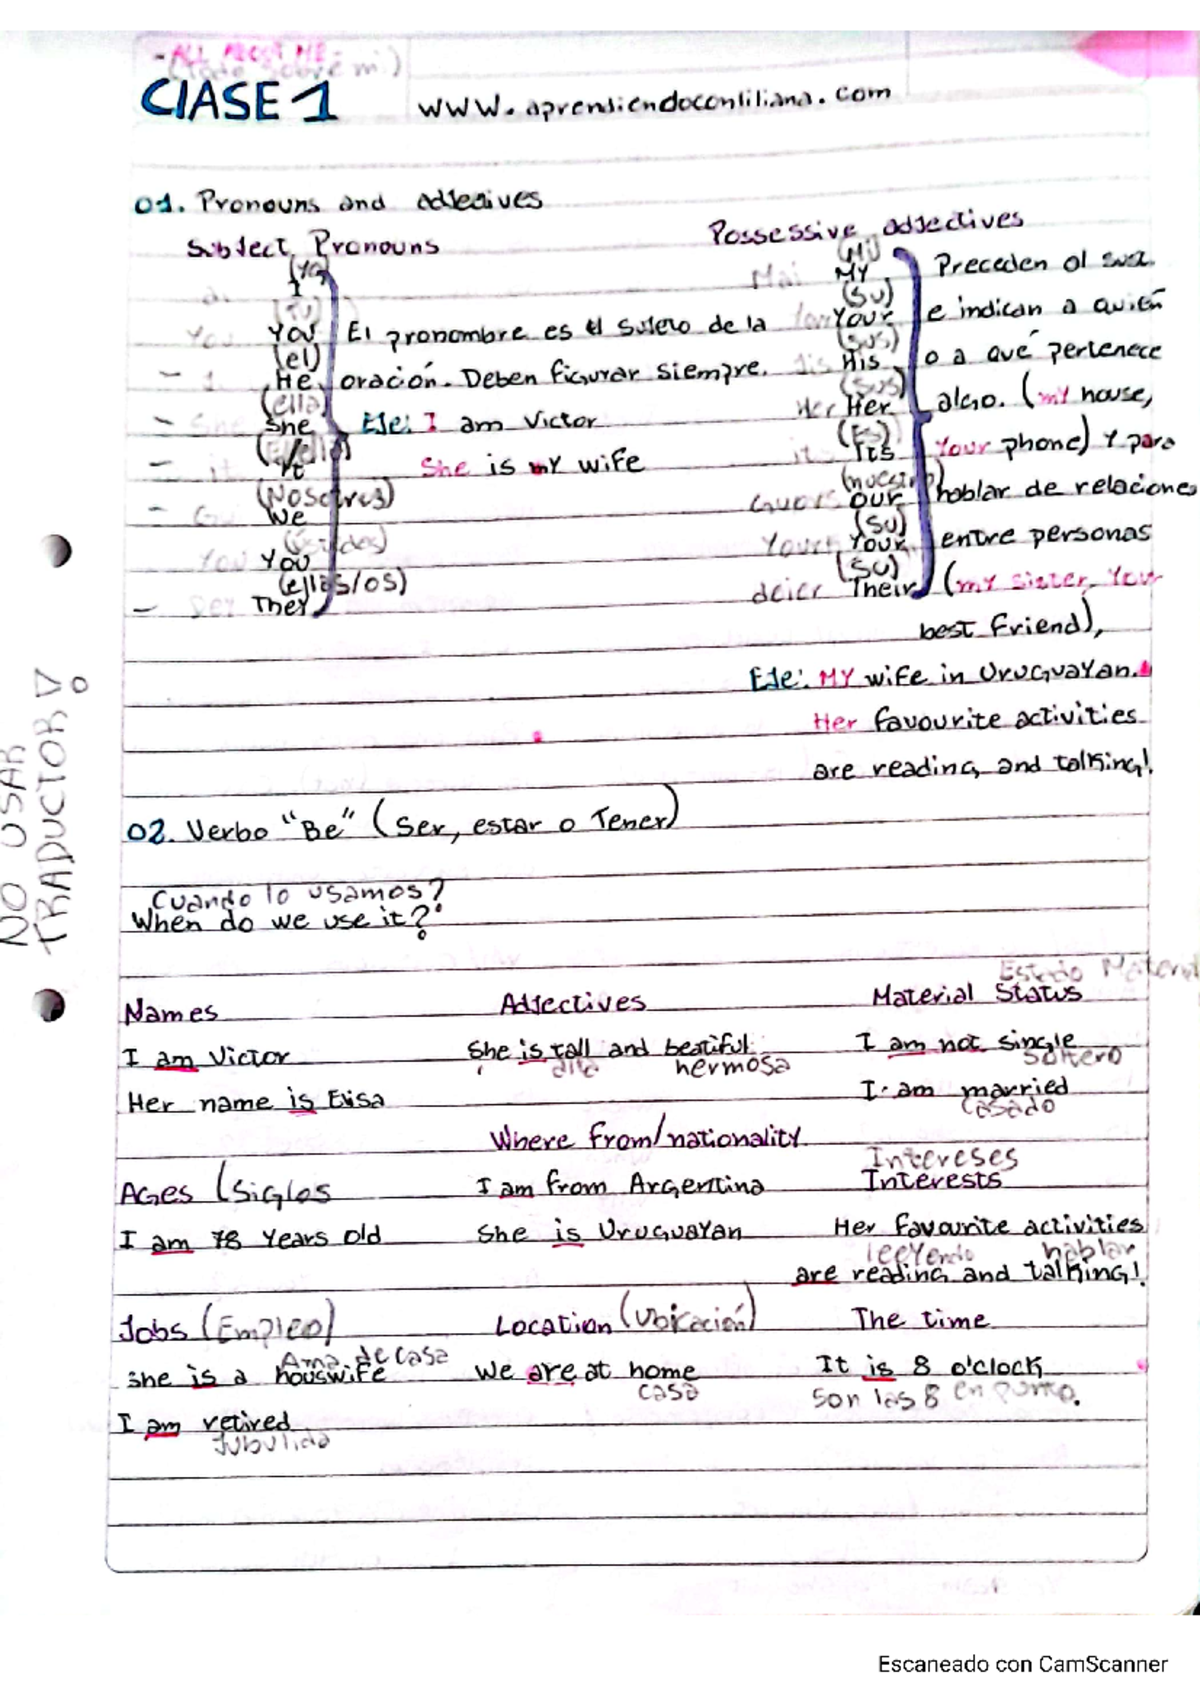 -ALL ABOUT ME-
(todo sobre mi)
ClASE 1 www.aprendiendoconliliana.com
01. Pronouns and adjectives
Subject Pronouns
Possessive adjectives
(Yo)
I
(tu)
You
(el)
He
(ella)
She
It
(Nosotros)
We
(Ustedes)
You
(ellas/os)
They
El pronombre es el sujeto de la
oración. Deben figurar siempre.
Eje: I am Victor
She is my wife
Mai
(Mi)
MY
(su)
Your
(sus)
His
Her
(sus)
Her
(Es)
Its
our
(su)
Your
deier
(su)
Their
Preceden al sust.
e indican a quién
o a qué pertenece
algo. (my house,
Your phone) Y para
hablar de relaciones
entre personas
(my sister, Your
best friend),
Eje: MY wife in Uruguayan.
Her favourite activities
are reading and talking!
NO USAR
TRADUCTOR
02. Verbo "Be" (Ser, estar o Tener)
Cuando lo usamos?
When do we use it?
Names
I am Victor
Her name is Elisa
Adjectives
She is tall and beatiful
alta hermosa
Estado Material
Material Status
I am not single
soltero
I am married
casado
Where from/nationality
I am from Argentina
She is Uruguayan
Ages (Siglos
I am 78 Years old
Intereses
Interests
Her favourite activities
leeyendo hablar
are reading and talking!
Jobs (Empleo)
Ama de casa
She is a houswife
I am retired
Jubulida
Location (Ubicación)
We are at home
casa
The time
It is 8 o'clock
Son las 8 en punto.
Escaneado con CamScanner